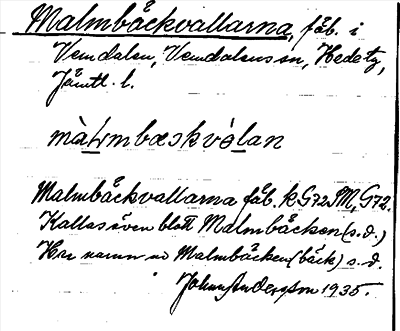 Malmbäckvallarna, fäb. i
Vemdalen, Vemdalens sn, Hede tg,
Jämtl. l.
màlmbæskvòlan
Malmbäckvallarna fäb. kG72SM, G72.
Kallas även blott Malmbäcken (s.d.)
Har namn av Malmbäcken (bäck) s.d.
Johan Anderson 1935.